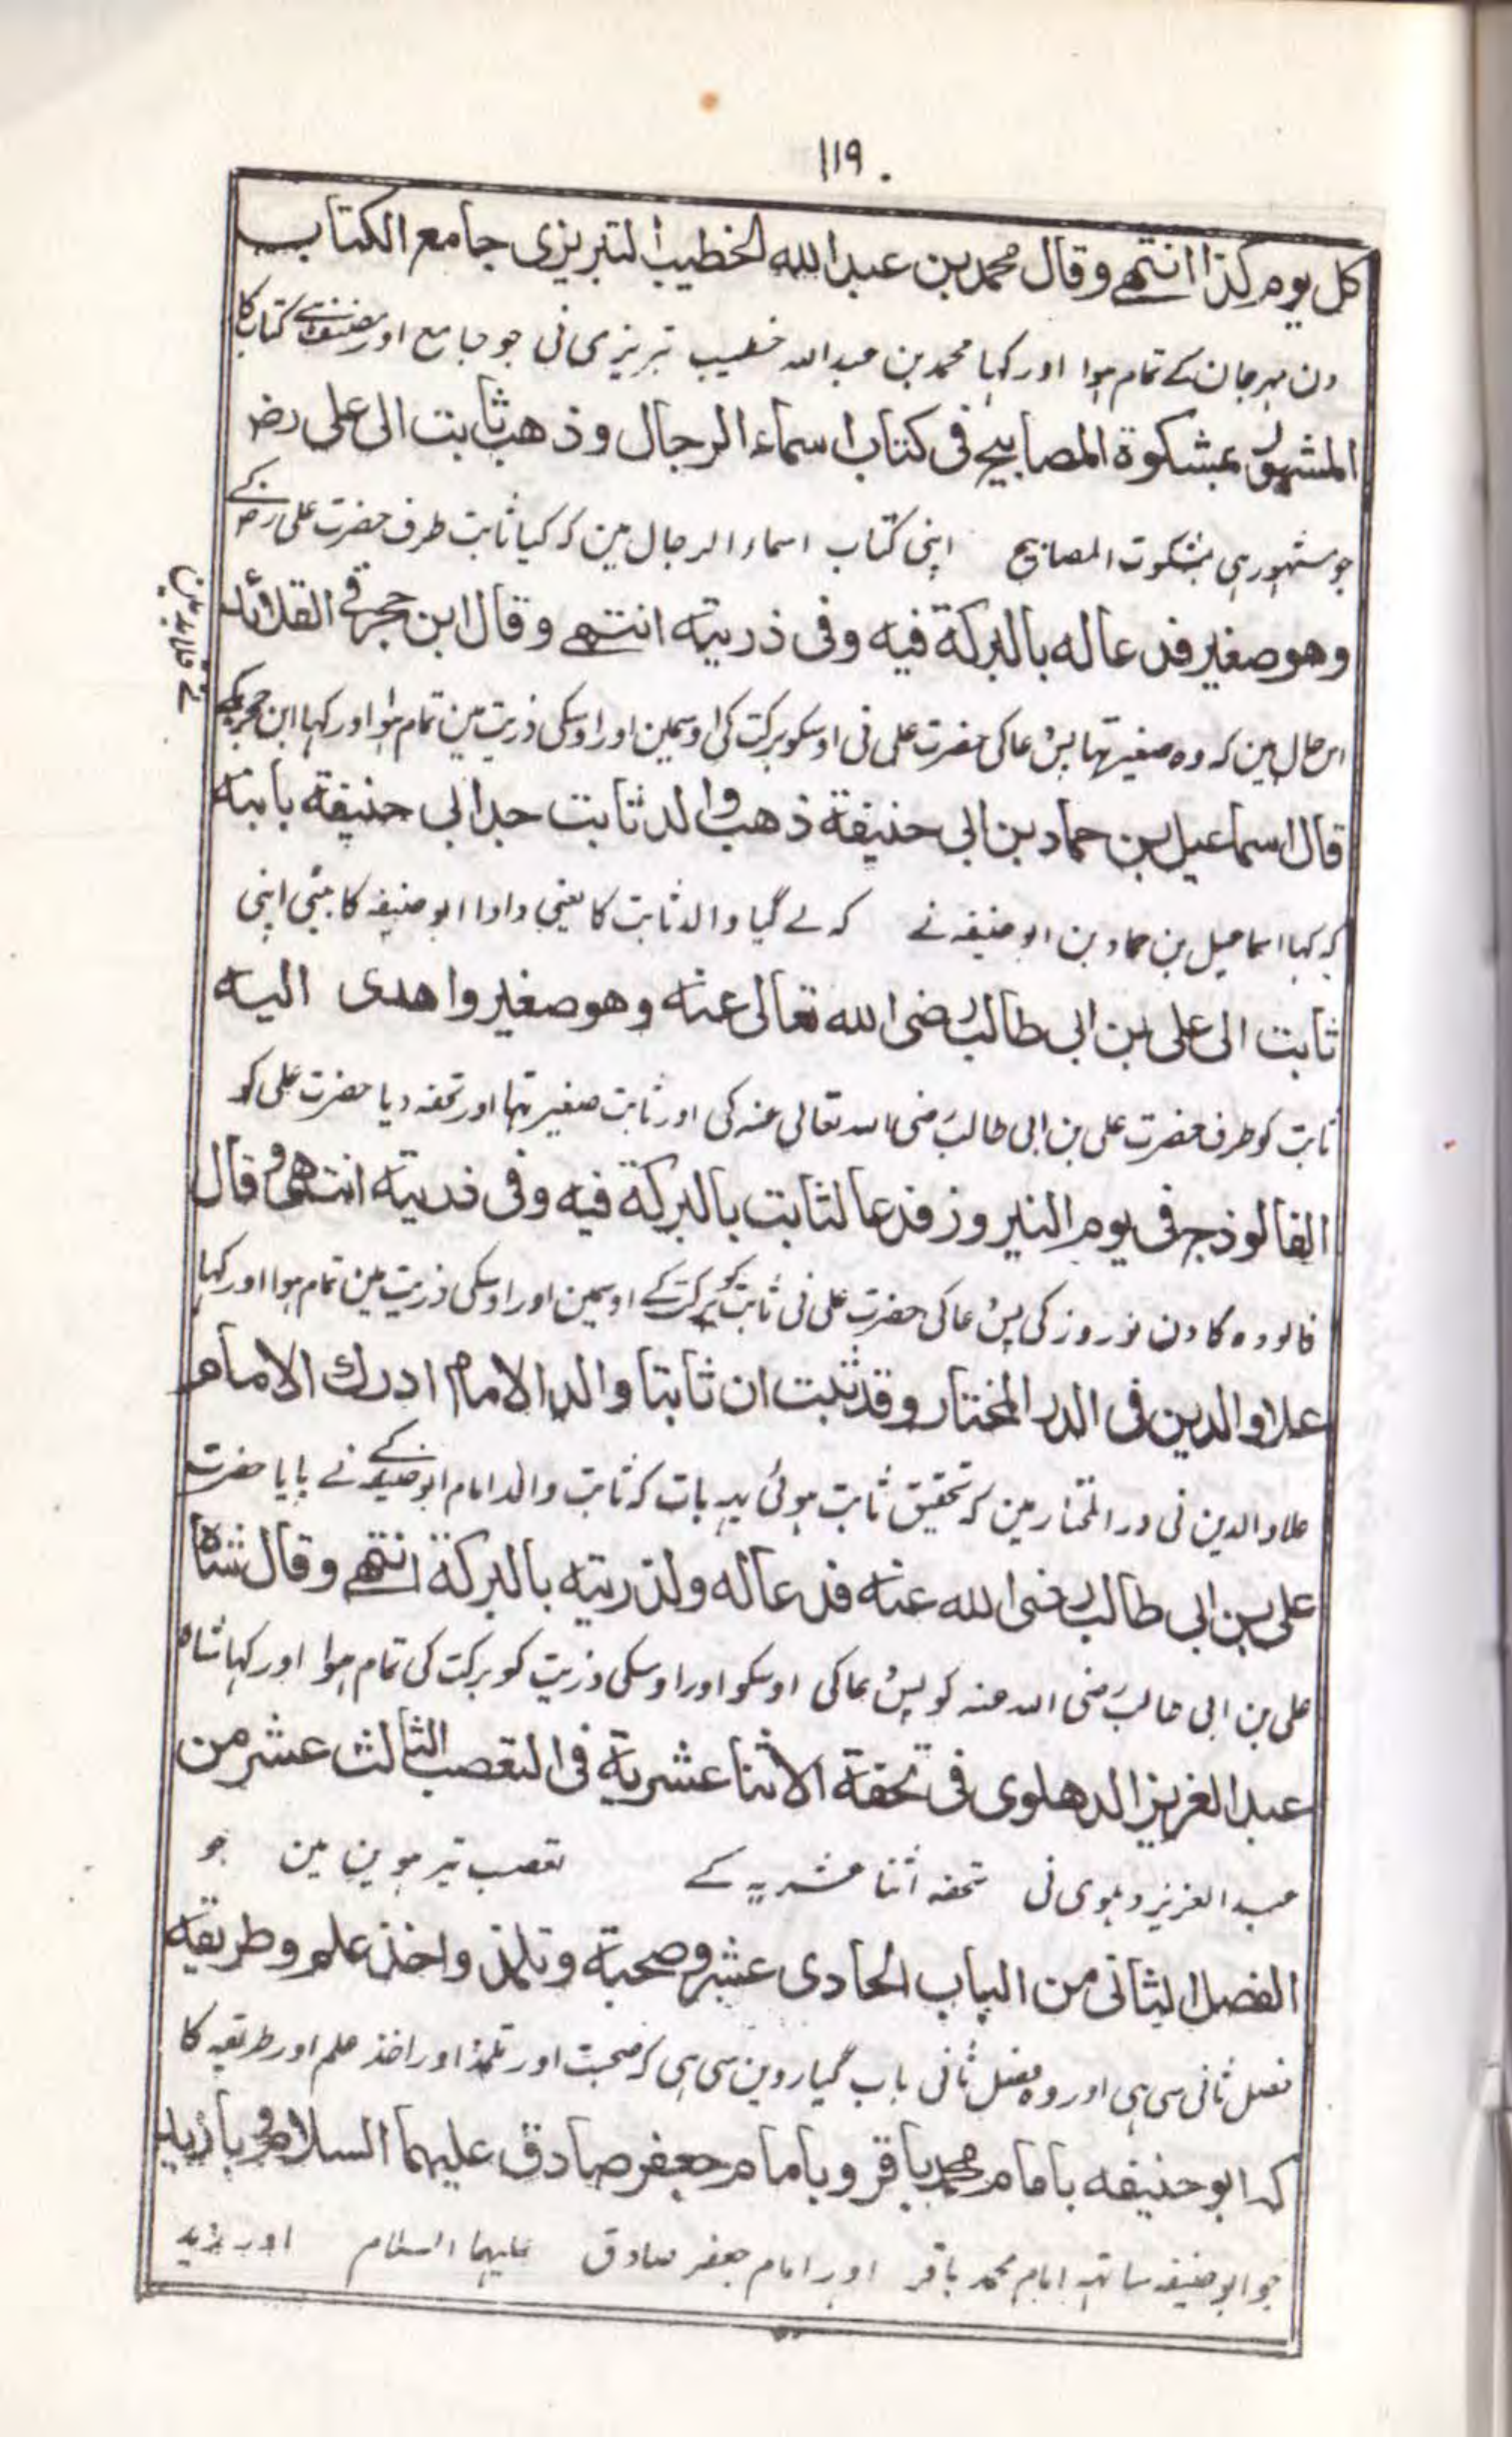 ۱۱۹
كل يوم كذا انتهى وقال محمد بن عبد الله الخطيب التبريزى جامع الكتاب
دن مہرجان کے تمام ہوا اور کہا محمد بن عبد اللہ خطیب تبریزی نی جو جامع اور مصنف ہے کتاب کا
المشهور بمشكوة المصابيح فى كتاب اسماء الرجال وذهب ثابت الى على رضـ
جو مشہور ہی بمشکوت المصابیح اپنی کتاب اسماء الرجال مین کہ گیا ثابت طرف حضرت علی رضـ کے
وهو صغير فدعا له بالبركة فيه وفى ذريته انتهى وقال ابن حجر فى القلائد
اس حال مین کہ وہ صغیر تہا پس دعا کی حضرت علی نی اوسکو برکت کی اوسمین اور اوسکی ذریت مین تمام ہوا اور کہا ابن حجر مکی
نے قلائد مین
قال اسماعيل بن حماد بن ابى حنيفة ذهب والد ثابت جد ابى حنيفة بابنه
کہ کہا اسماعیل بن حماد بن ابو حنیفہ نے کہ لے گیا والد ثابت کا یعنی دادا ابو حنیفہ کا بیٹی اپنی
ثابت الى على بن ابى طالب رضى الله تعالى عنه وهو صغير واهدى اليه
ثابت کو طرف حضرت علی بن ابی طالب رضی اللہ تعالی عنہ کی اور ثابت صغیر تہا اور تحفہ دیا حضرت علی کو
الفالوذج فى يوم النيروز فدعا لثابت بالبركة فيه وفى ذريته انتهى وقال
فالودہ کا دن نوروز کی پس دعا کی حضرت علی نی ثابت کو برکت کے اوسمین اور اوسکی ذریت مین تمام ہوا اور کہا
علاو الدين فى الدر المختار وقد ثبت ان ثابتا والد الامام ادرك الامام
علاو الدین نی در المختار مین کہ تحقیق ثابت ہوئی یہہ بات کہ ثابت والد امام ابو حنیفہ کے نے پایا حضرت
على بن ابى طالب رضى الله عنه فدعا له ولذريته بالبركة انتهى وقال شاه
علی بن ابی طالب رضی اللہ عنہ کو پس دعا کی اوسکو اور اوسکی ذریت کو برکت کی تمام ہوا اور کہا شاہ
عبد العزيز الدهلوى فى تحفة الاثنا عشرية فى التعصب الثالث عشر من
عبد العزیز دہلوی نی تحفہ اثنا عشریہ کے تعصب تیرہوین مین جو
الفصل الثانى من الباب الحادى عشر وصحبة وتلمذ واخذ علم وطريقه
فصل ثانی سی ہی اور وہ فصل ثانی باب گیاروین سی ہی کہ صحبت اور تلمذ اور اخذ علم اور طریقہ کا
كه ابو حنيفه بامام محمد باقر وبامام جعفر صادق عليهما السلام وبا زيد
جو ابو حنیفہ ساتہہ امام محمد باقر اور امام جعفر صادق علیہما السلام اور زید